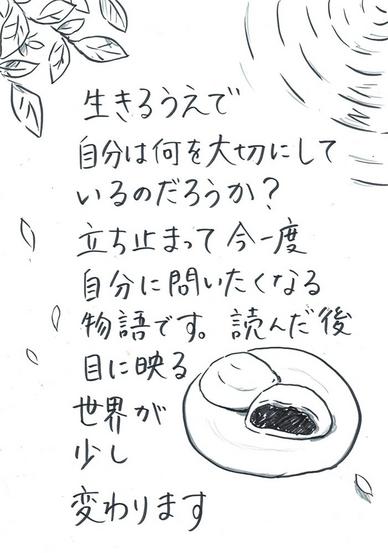 生きるうえで
自分は何を大切にして
いるのだろうか?
立ち止まって今一度
自分に問いたくなる
物語です。読んだ後
目に映る
世界が
少し
変わります